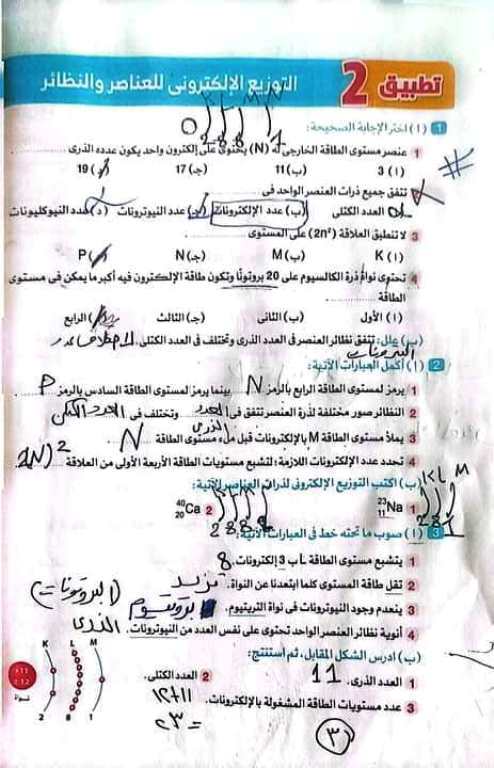 تطبيق 2 التوزيع الإلكترونى للعناصر والنظائر
1 (أ) اختر الإجابة الصحيحة:
2 8 8 1
1 عنصر مستوى الطاقة الخارجى له (N) يحتوى على إلكترون واحد يكون عدده الذرى
(أ) 3 (ب) 11 (جـ) 17 (د) 19
تتفق جميع ذرات العنصر الواحد فى
العدد الكتلى (ب) عدد الإلكترونات عدد النيوترونات (د) عدد النيوكليونات
3 لا تنطبق العلاقة (2n²) على المستوى
(أ) K (ب) M (جـ) N (د) P
4 تحتوى نواة ذرة الكالسيوم على 20 بروتونًا وتكون طاقة الإلكترون فيه أكبر ما يمكن فى مستوى
الطاقة
(أ) الأول (ب) الثانى (جـ) الثالث (د) الرابع
(ب) علل: تتفق نظائر العنصر فى العدد الذرى وتختلف فى العدد الكتلى. لاختلاف عدد
النيوترونات
2 (أ) أكمل العبارات الآتية:
1 يرمز لمستوى الطاقة الرابع بالرمز N بينما يرمز لمستوى الطاقة السادس بالرمز P
2 النظائر صور مختلفة لذرة العنصر تتفق فى العدد الذرى وتختلف فى العدد الكتلى
3 يملأ مستوى الطاقة M بالإلكترونات قبل ملء مستوى الطاقة N
4 تحدد عدد الإلكترونات اللازمة؛ لتشبع مستويات الطاقة الأربعة الأولى من العلاقة 2N)2
(ب) اكتب التوزيع الإلكترونى لذرات العناصر الآتية:
1 23 11 Na K L M 2 8 1 2 40 20 Ca 2 8 8 2
3 (أ) صوب ما تحته خط فى العبارات الآتية:
1 يتشبع مستوى الطاقة L بـ 3 إلكترونات. 8
2 تقل طاقة المستوى كلما ابتعدنا عن النواة. تزيد
3 ينعدم وجود النيوترونات فى نواة التريتيوم. بروتيوم
4 أنوية نظائر العنصر الواحد تحتوى على نفس العدد من النيوترونات. البروتونات
الذرى
(ب) ادرس الشكل المقابل، ثم استنتج:
1 العدد الذرى. 11 2 العدد الكتلى.
١٢+١١
3 عدد مستويات الطاقة المشغولة بالإلكترونات.
= ٢٣
٣
K L M
2 8 1